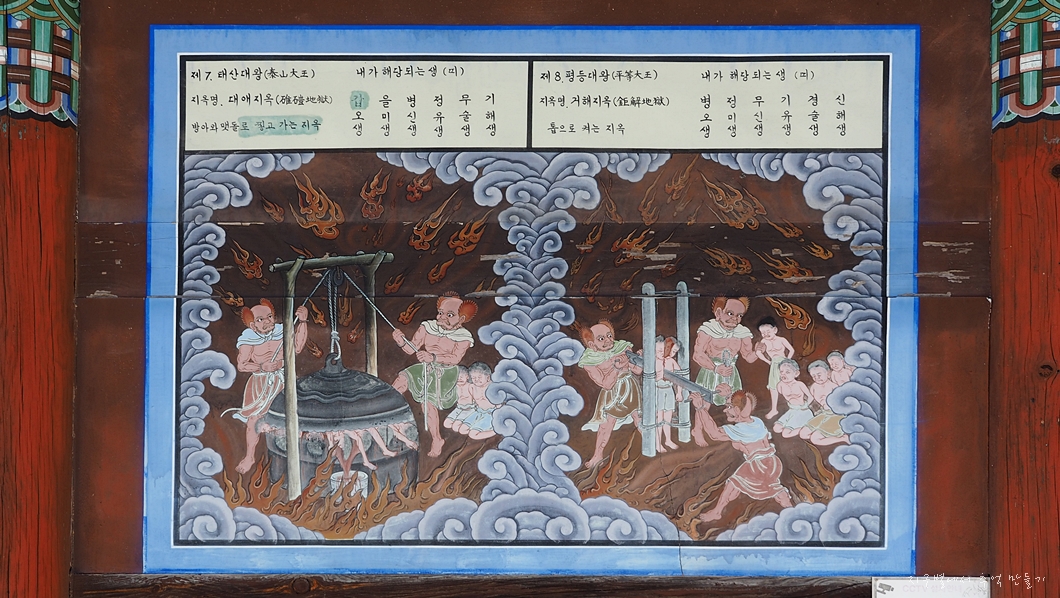 제7. 태산대왕(泰山大王)
내가 해당되는 생 (띠)
지옥명. 대애지옥(碓磑地獄)
갑 을 병 정 무 기
방아와 맷돌로 찧고 가는 지옥
오 미 신 유 술 해
생 생 생 생 생 생
제8. 평등대왕(平等大王)
내가 해당되는 생 (띠)
지옥명. 거해지옥(鉅解地獄)
병 정 무 기 경 신
톱으로 켜는 지옥
오 미 신 유 술 해
생 생 생 생 생 생
추억 만들기